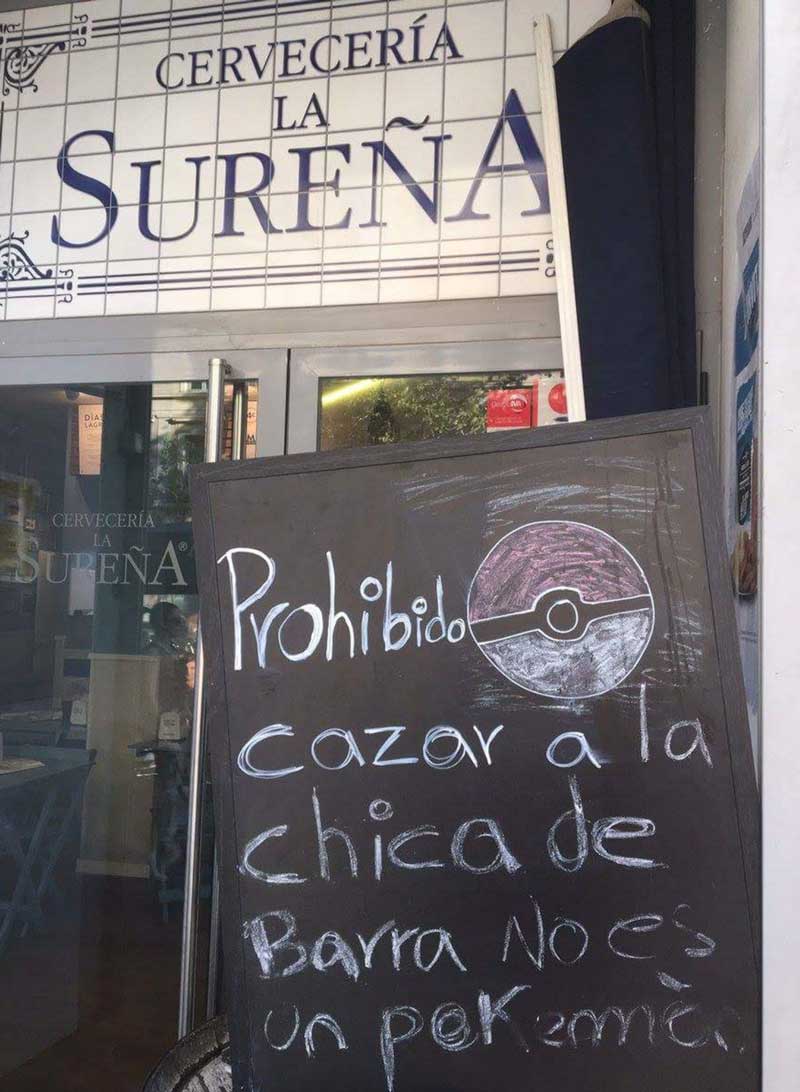 CERVECERÍA
LA
SUREÑA
DÍAS
CERVECERÍA
LA
SUREÑA®
Prohibido
cazar a la
chica de
Barra No es
un pokemòn